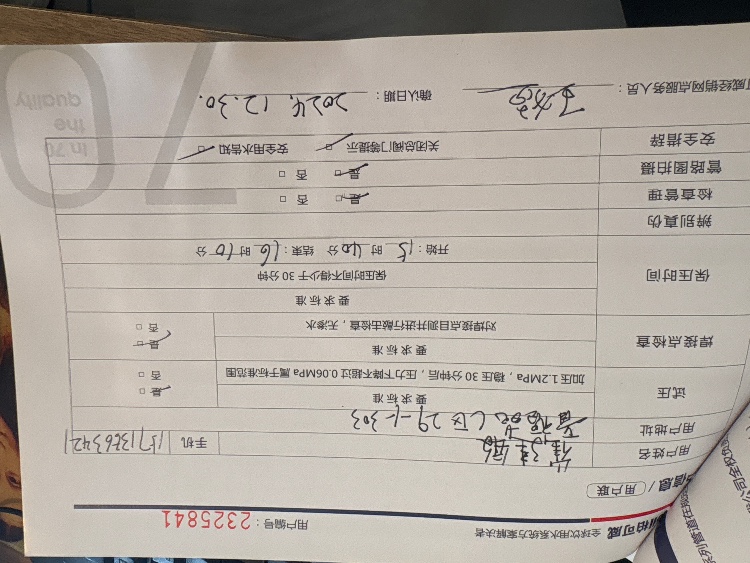 柏可威 全球饮用水系统方案解决者 用户编号：2325841
信息 /（用户联）
用户姓名 手机
用户地址 C区29-1-303
试压 要求标准 是 □
加压1.2MPa，稳压30分钟后，压力下降不超过0.06MPa属于标准范围 否 □
焊接点检查 要求标准 是 □
对焊接点目测并进行敲击检查，无渗水 否 □
保压时间 要求标准
保压时间不得少于30分钟
开始：15时40分 结束：16时10分
辨别真伪
检查管理 是 □ 否 □
管路图拍摄 是 □ 否 □
安全措辞 关闭总阀门等提示 □ 安全用水告知 □
威经销网点服务人员： 确认日期：2024.12.30.
70
In 70
the
quality